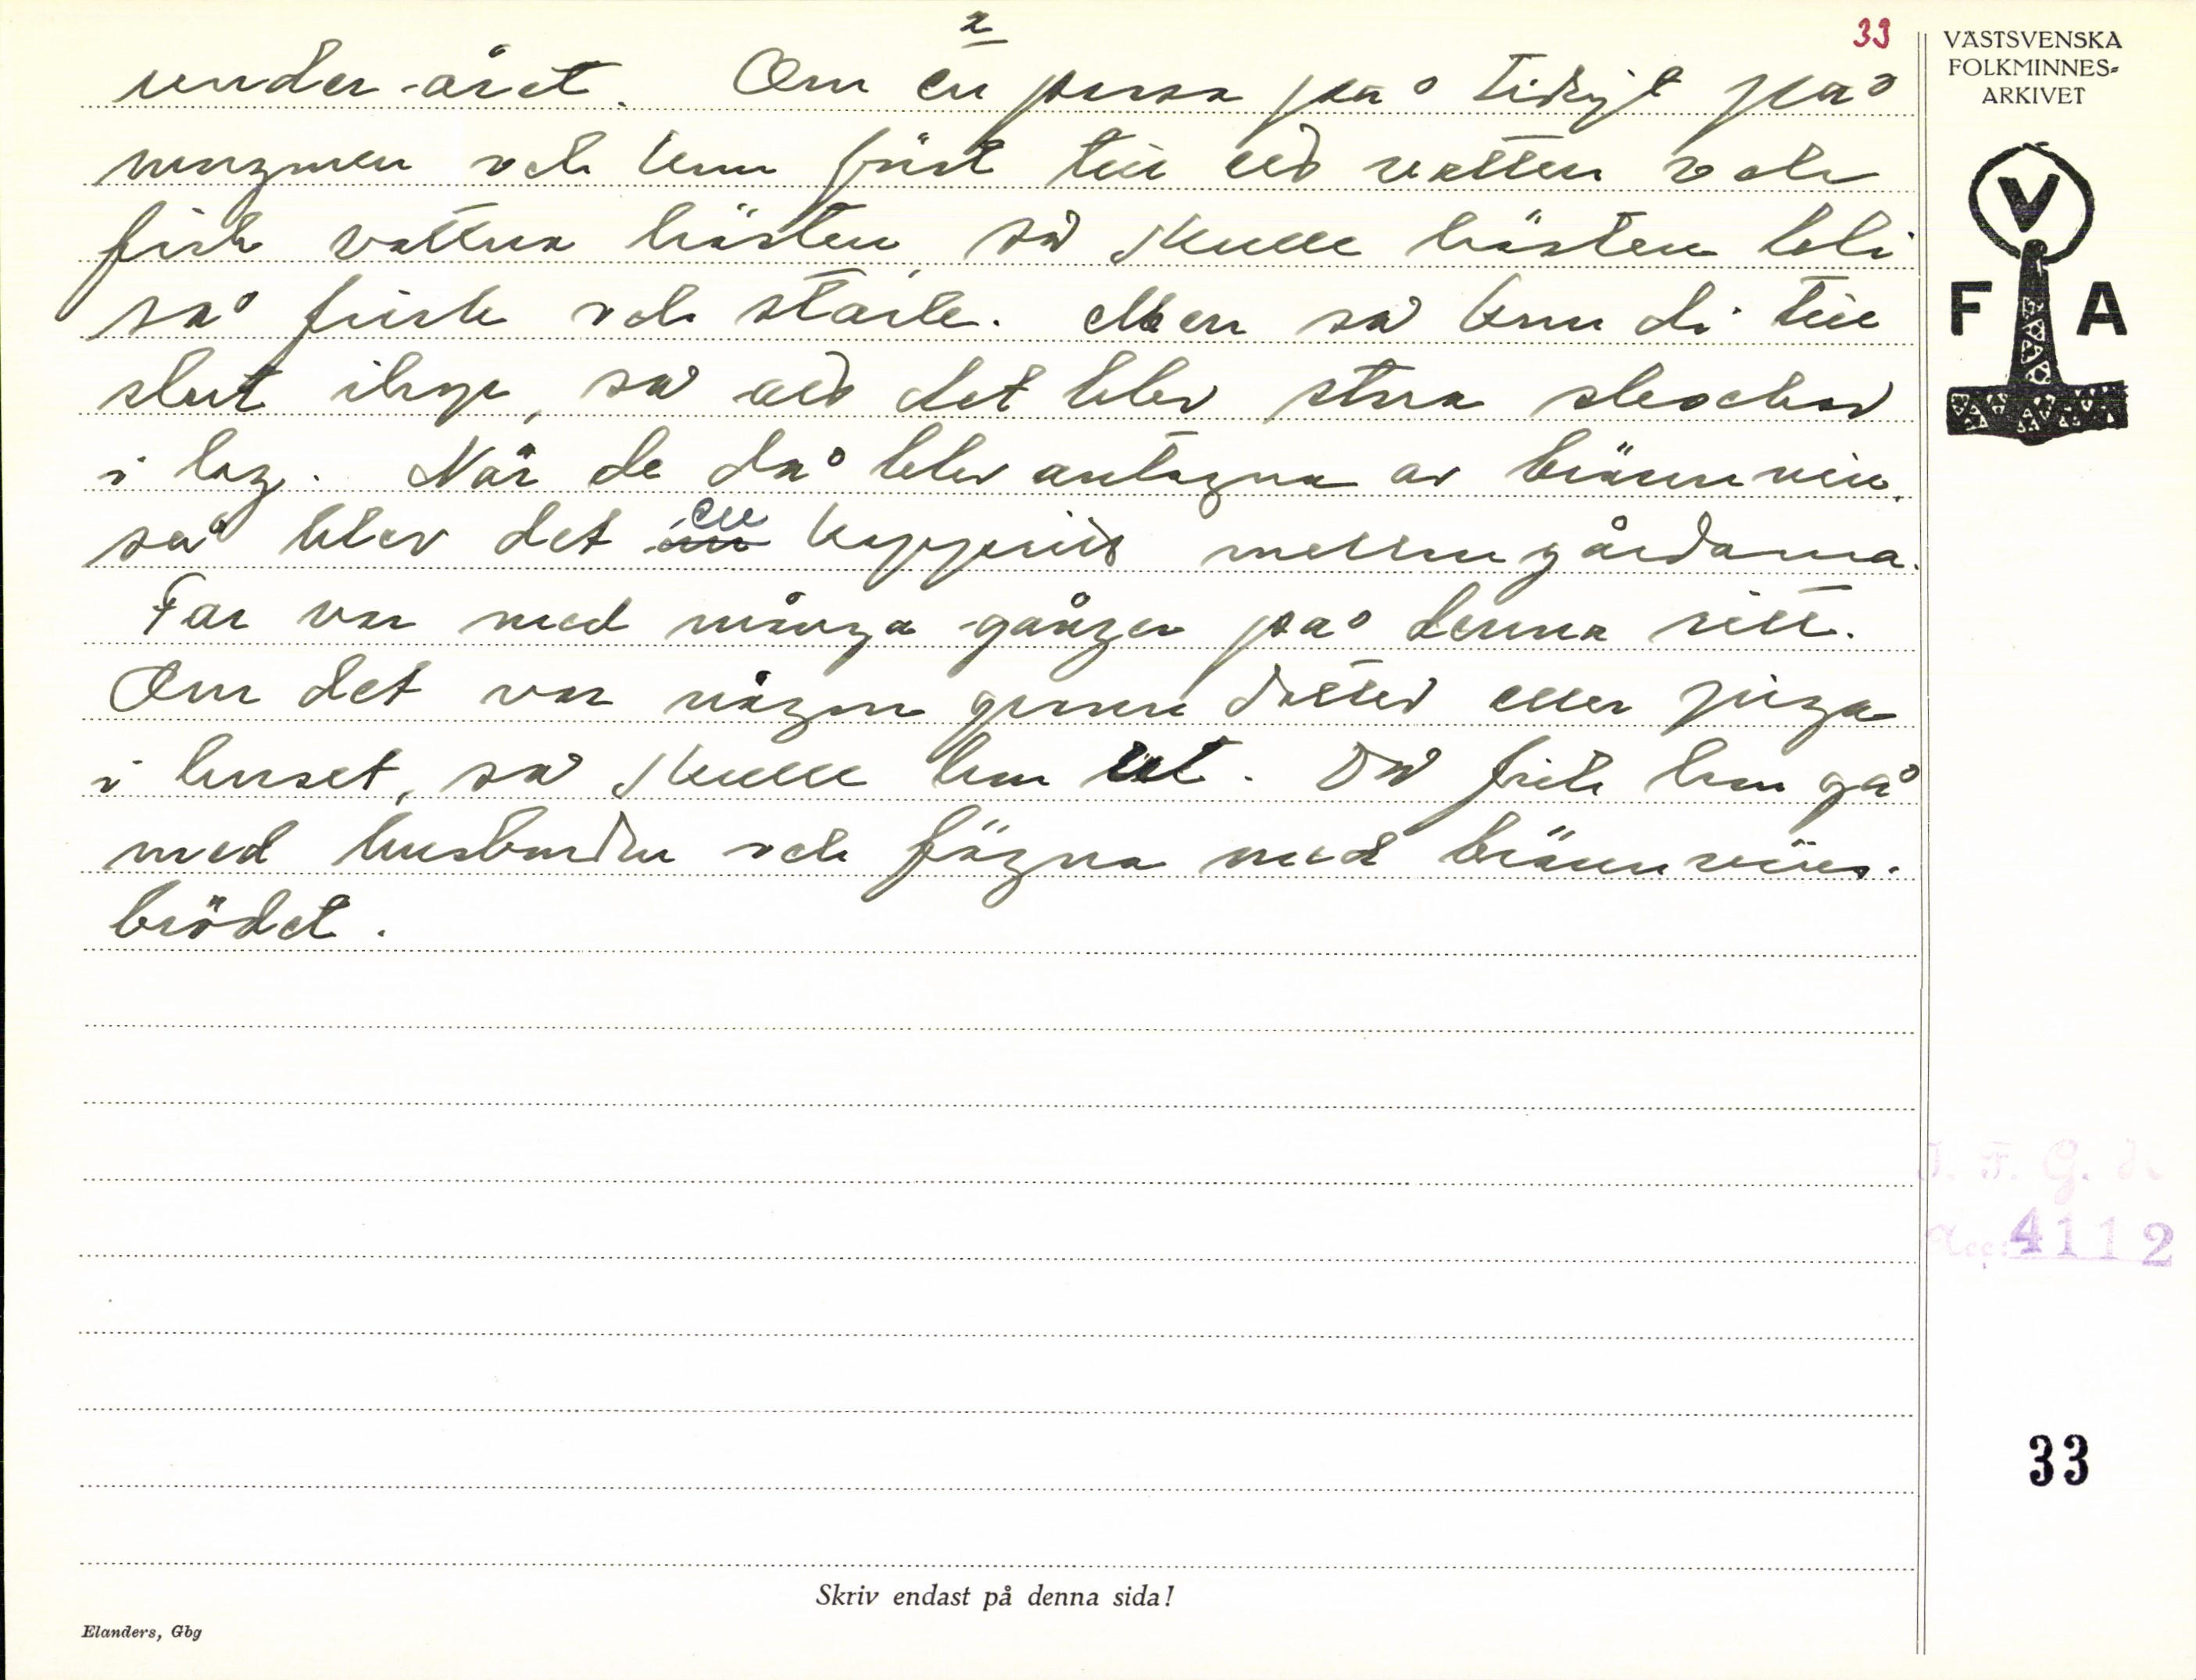 2
33
under året. Om en passa på tidigt på
morgonen och kom först till ed vatten och
fick vattna hästen, så skulle hästen bli
så frisk och stark. Men så kom di till
slut ihop, så att det blev stora skockar
i lag. När de då blev antagna av brännvin,
så blev det en kappridt mellan gårdarna.
Far var med många gånger på denna ritt.
Om det var någon grann dotter eller piga
i huset, så skulle hon ut. Då fick hon gå
med husbonden och fägna med brännvins-
brödet.
VÄSTSVENSKA
FOLKMINNES-
ARKIVET
V
F A
I. F. G.
Acc: 4112
33
Skriv endast på denna sida!
Elanders, Gbg